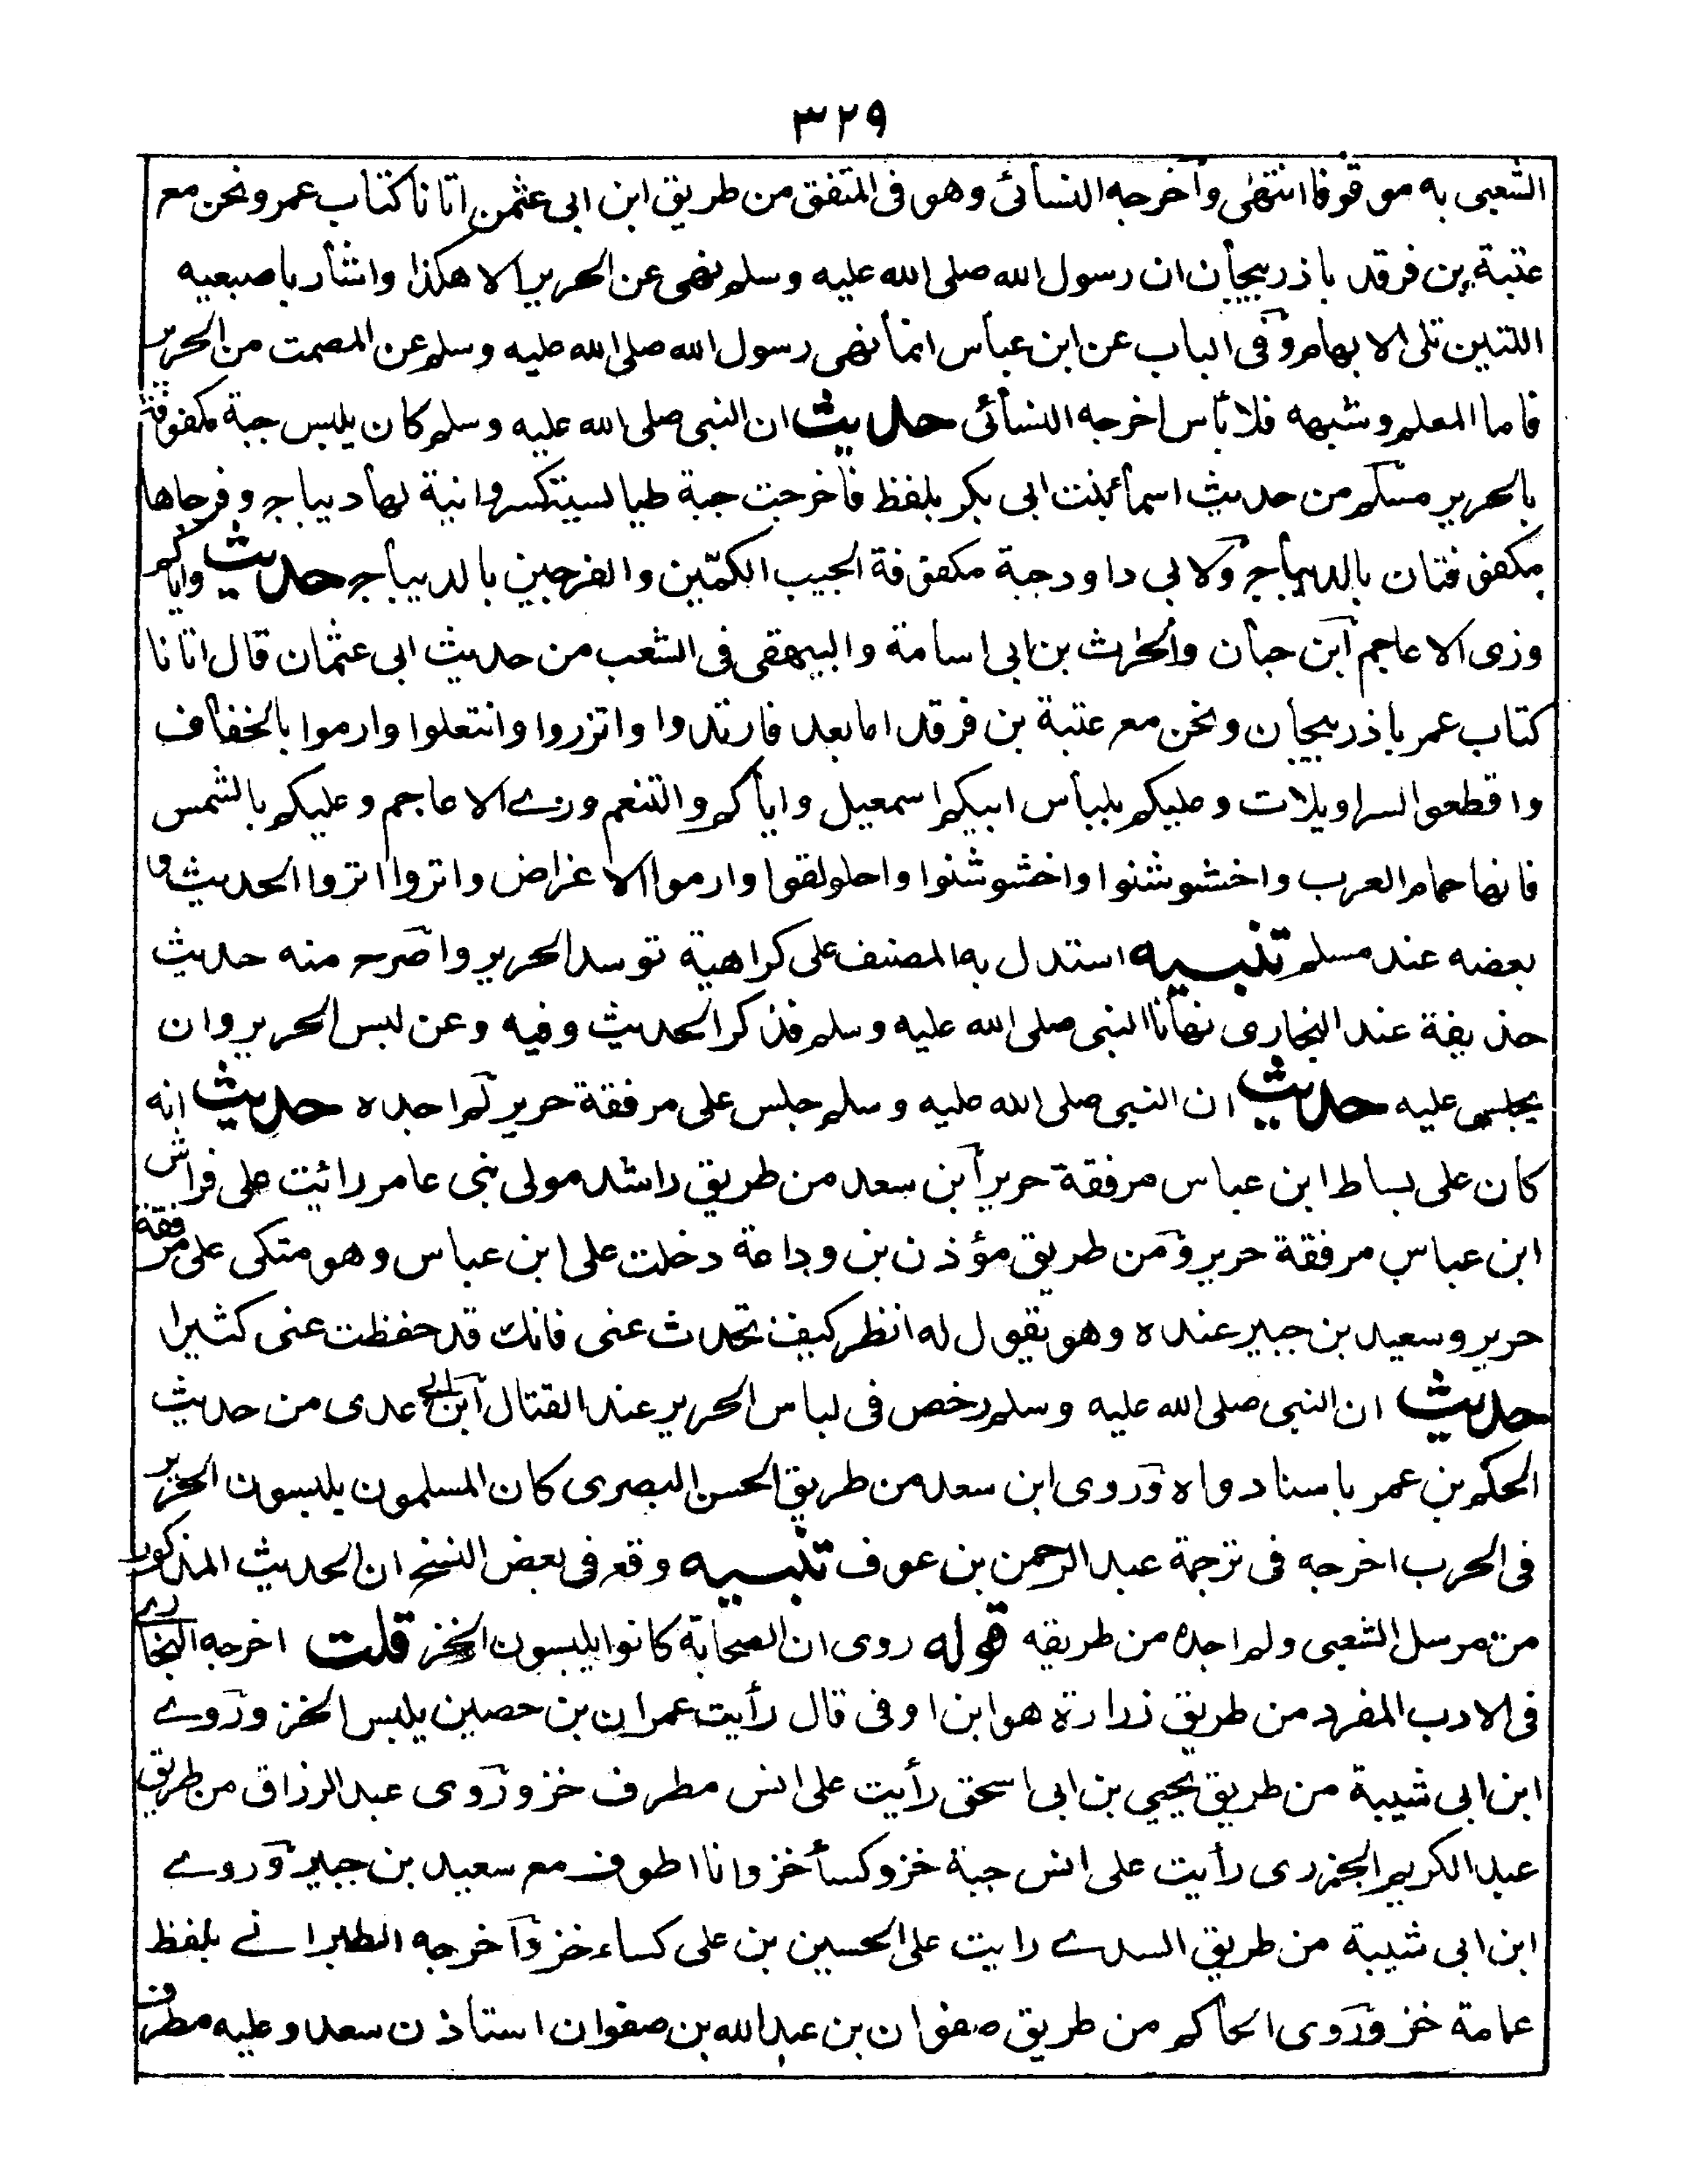 ٣٢٩
الشعبى به موقوفا انتهى وآخرجه النسائى وهو فى المتفق من طريق ابن ابى عثمن اتانا كتاب عمرو نحن مع
عتبة بن فرقد باذربيجان ان رسول الله صلى الله عليه وسلم نهى عن الحرير الا هكذا واشار باصبعيه
اللتين تلى الابهام وفى الباب عن ابن عباس انما نهى رسول الله صلى الله عليه وسلم عن المصمت من الحرير
فاما المعلم وشبهه فلا بأس اخرجه النسائى حديث ان النبى صلى الله عليه وسلم كان يلبس جبة مكفوفة
بالحرير مسلم من حديث اسماء بنت ابى بكر بلفظ فاخرجت جبة طيالسية كسروانية لها ديباج وفرجاها
مكفوفتان بالديباج ولابى داود جبة مكفوفة الجيب الكمّين والفرجين بالديباج حديث واياكم
وزى الاعاجم ابن حبان والحرث بن ابى اسامة والبيهقى فى الشعب من حديث ابى عثمان قال اتانا
كتاب عمر باذربيجان ونحن مع عتبة بن فرقد اما بعد فارتدوا واتزروا وانتعلوا وارموا بالخفاف
واقطعوا السراويلات وعليكم بلباس ابيكم اسمعيل واياكم والتنعم وزے الاعاجم وعليكم بالشمس
فانها حمام العرب واخشوشنوا واخشوشنوا واحلولقوا وارموا الاغراض واتزوا اتزوا الحديث و
بعضه عند مسلم تنبيه استدل به المصنف على كراهية توسد الحرير واصرح منه حديث
حذيفة عند البخارى نهانا النبى صلى الله عليه وسلم فذكر الحديث وفيه وعن لبس الحرير وان
يجلس عليه حديث ان النبى صلى الله عليه وسلم جلس على مرفقة حرير لم اجده حديث انه
كان على بساط ابن عباس مرفقة حرير ابن سعد من طريق راشد مولى بنى عامر رائت على فراش
ابن عباس مرفقة حرير ومن طريق مؤذن بن وداعة دخلت على ابن عباس وهو متكى على مرفقة
حرير وسعيد بن جبير عنده وهو يقول له انظر كيف تحدث عنى فانك قد حفظت عنى كثيرا
حديث ان النبى صلى الله عليه وسلم رخص فى لباس الحرير عند القتال ابن ابى عدى من حديث
الحكم بن عمر باسناد واه وروى ابن سعد من طريق الحسن البصرى كان المسلمون يلبسون الحرير
فى الحرب اخرجه فى ترجمة عبد الرحمن بن عوف تنبيه وقع فى بعض النسخ ان الحديث المذكور
من مرسل الشعبى ولم اجده من طريقه قوله روى ان الصحابة كانوا يلبسون الخز قلت اخرجه البخارے
فى الادب المفرد من طريق زرارة هو ابن اوفى قال رأيت عمران بن حصين يلبس الخز وروے
ابن ابى شيبة من طريق يحيي بن ابى اسحق رأيت على انس مطرف خز وروى عبد الرزاق من طريق
عبد الكريم الجزرى رأيت على انس جبة خز وكسأ خز وانا اطوف مع سعيد بن جبير وروے
ابن ابى شيبة من طريق السدے رايت على الحسين بن على كساء خز وآخرجه الطبرانے بلفظ
عمامة خز وروى الحاكم من طريق صفوان بن عبد الله بن صفوان استاذن سعد وعليه مطرف